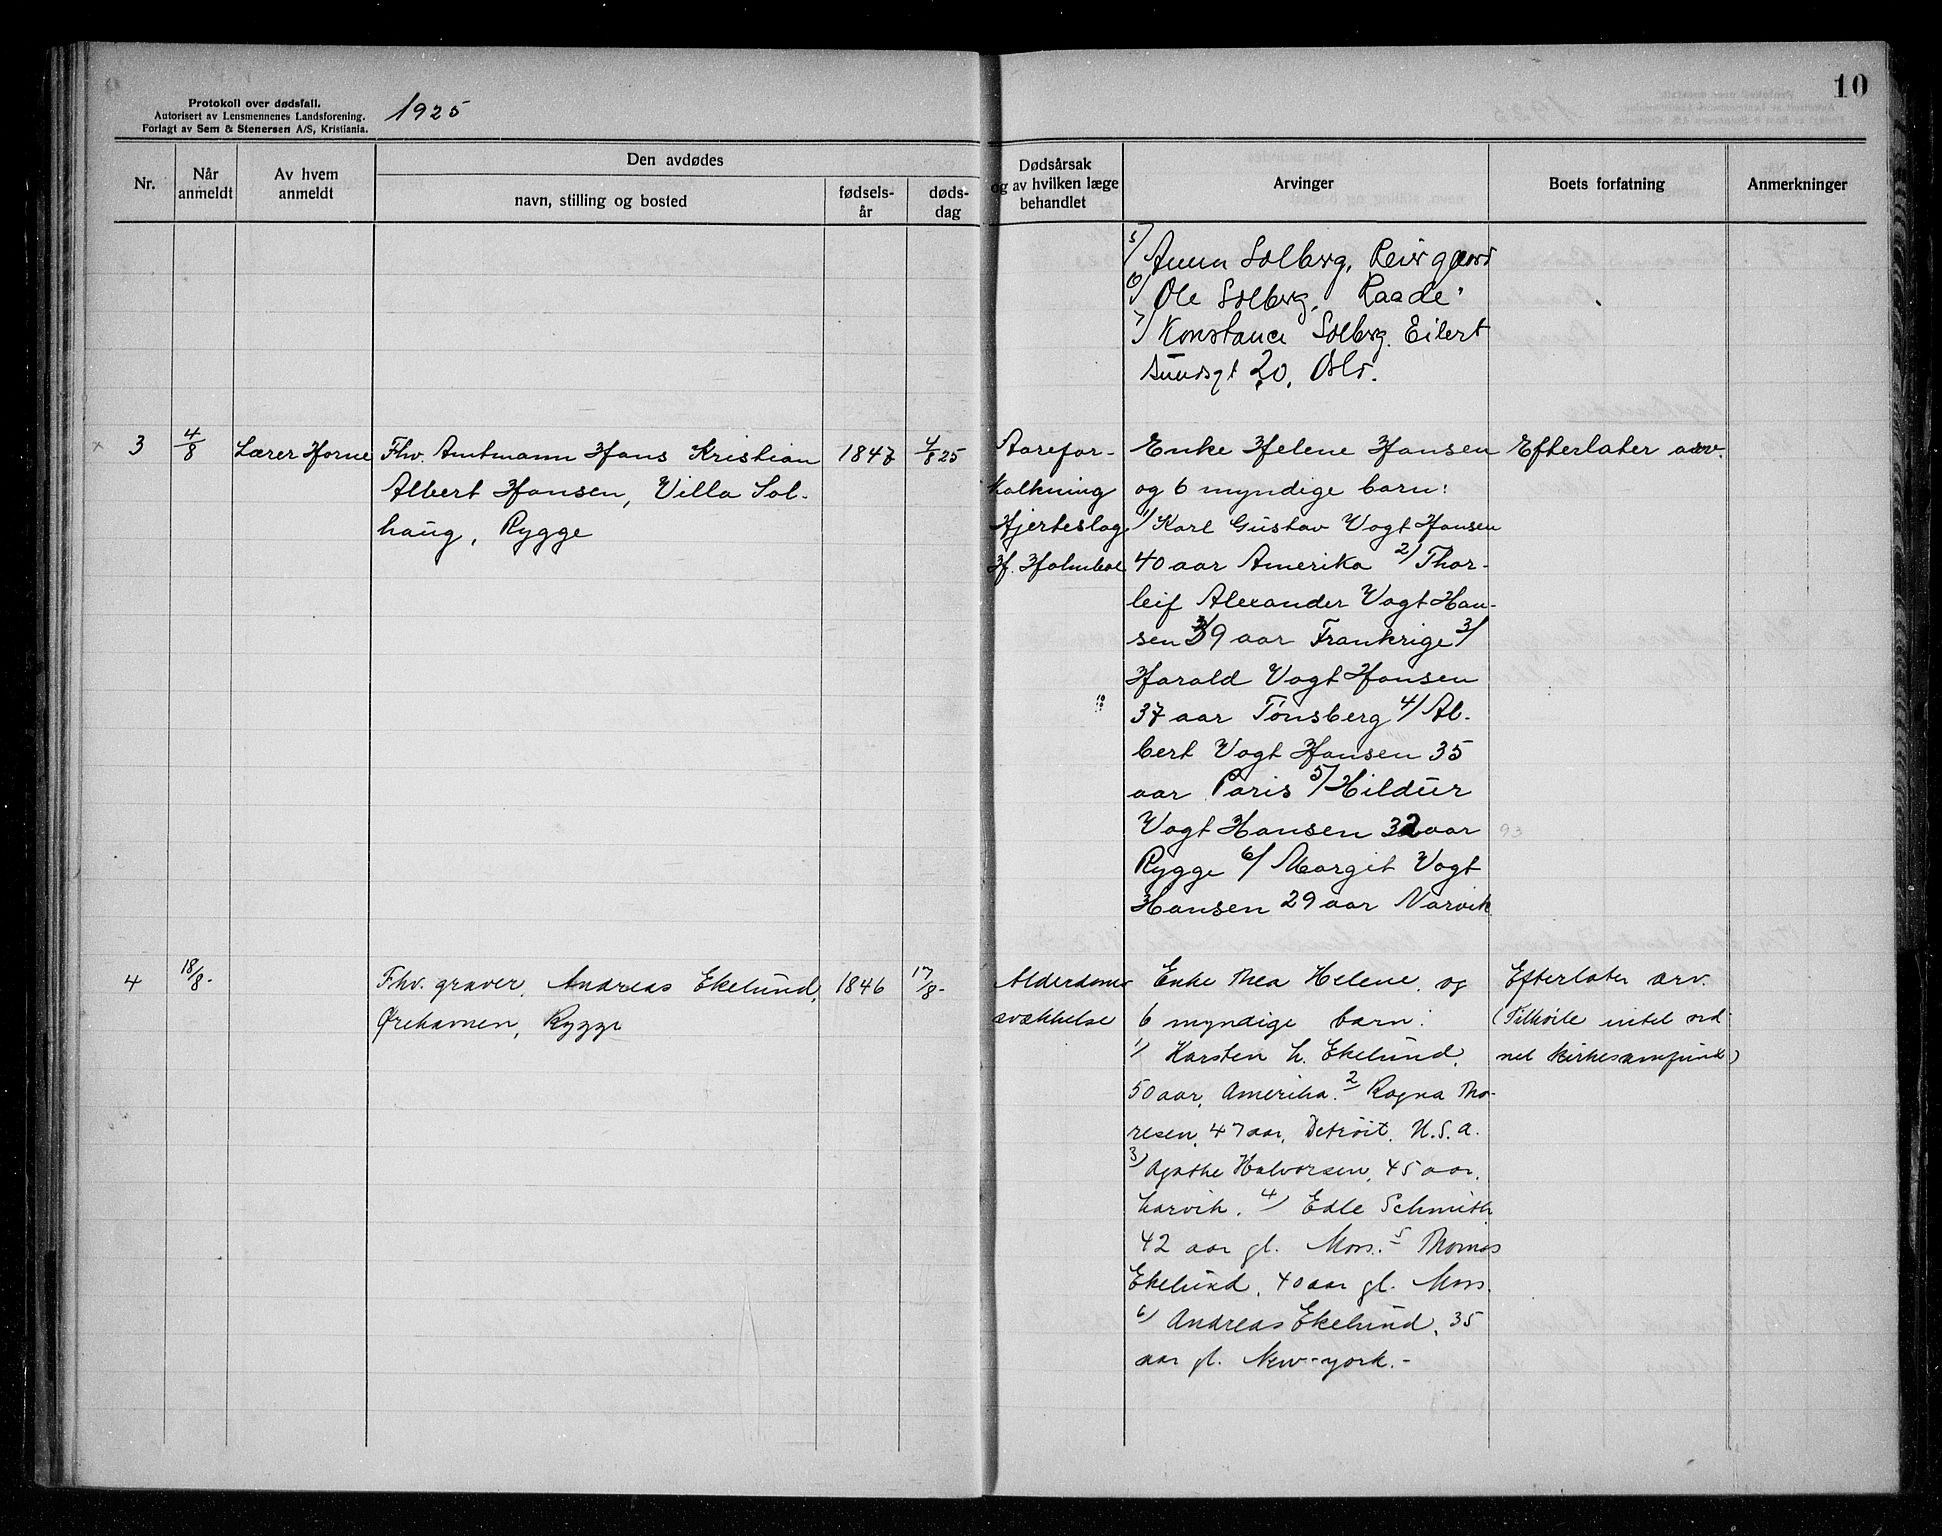 Protokoll over dødsfall.
Autorisert av Lensmennenes Landsforening.
Forlagt av Sem & Stenersen A/S, Kristiania.
1925
10
Nr.
Når anmeldt
Av hvem anmeldt
Den avdødes
navn, stilling og bosted
fødselsår
dødsdag
Dødsårsak og av hvilken læge behandlet
Arvinger
Boets forfatning
Anmerkninger
5/ Anna Solberg,
6/ Ole Solberg, Raade
7/ Konstance Solberg. Eilert
Sundsgt 20, Oslo.
3
4/8
Lærer Horne
Fhv. Amtmann Hans Kristian
Albert Hansen, Villa Sol-
haug, Rygge
1847
4/8 25
Aarefor-
kalkning
Hjerteslag
Hf. Holmboe
Enke Helene Hansen
og 6 myndige barn:
1/ Karl Gustav Vogt Hansen
40 aar Amerika 2/ Thor-
leif Alexander Vogt Han-
sen 39 aar Frankrige 3/
Harald Vogt Hansen
37 aar Tønsberg 4/ Al-
bert Vogt Hansen 35
aar Paris 5/ Hildur
Vogt Hansen 32 aar
Rygge 6/ Margit Vogt
Hansen 29 aar Narvik
Efterlater arv.
93
4
18/8-
Fhv. graver, Andreas Ekelund,
Ørehavnen, Rygge
1846
17/8-
Alderdoms
svækkelse
Enke Thea Helene, og
6 myndige barn:
1/ Karsten L. Ekelund,
50 aar, Amerika. 2 Ragna Tho-
resen, 47 aar, Detroit, U.S.A.
3/ Agathe Halvorsen, 45 aar,
Larvik. 4/ Edle Schmith
42 aar gl. Moss. 5 Thomas
Ekelund, 40 aar gl. Moss.
6/ Andreas Ekelund, 35
aar gl. New-York.-
Efterlater arv.
(Tilhøile intet ord
net kirkesamfund)